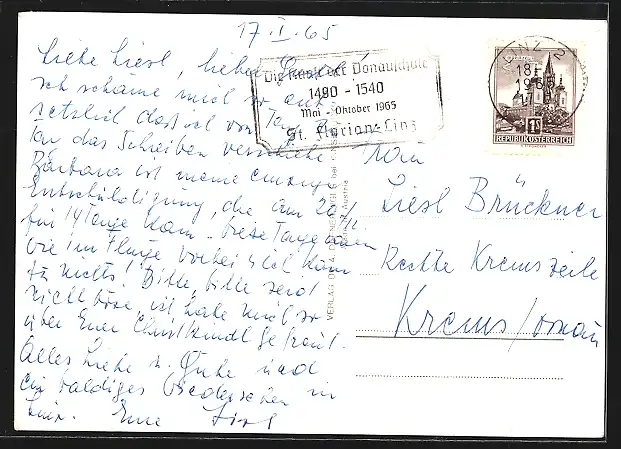 17. I. 65
Liebe Liesl, lieber
Ich schäme mich so ent-
setzlich dass ich von Tag zu
Tag das Schreiben verschiebe
Barbara ist meine einzige
Entschuldigung, die am
für 14 Tage kam. Diese Tage
wie im Fluge vorbei & ich kam
zu nichts! Bitte, bitte seid
nicht böse, ich habe mich so
über Euer Christkindl gefreut.
Alles Liebe u. Gute und
ein baldiges Wiedersehen in
Linz. Eure Liesl
Die Kunst der Donauschule
1490 - 1540
Mai - Oktober 1965
St. Florian - Linz
LINZ 2
18. I.
1965
1S
REPUBLIK ÖSTERREICH
VERLAG
Austria
Frau
Liesl Brückner
Rechte Kremszeile
Krems/Donau